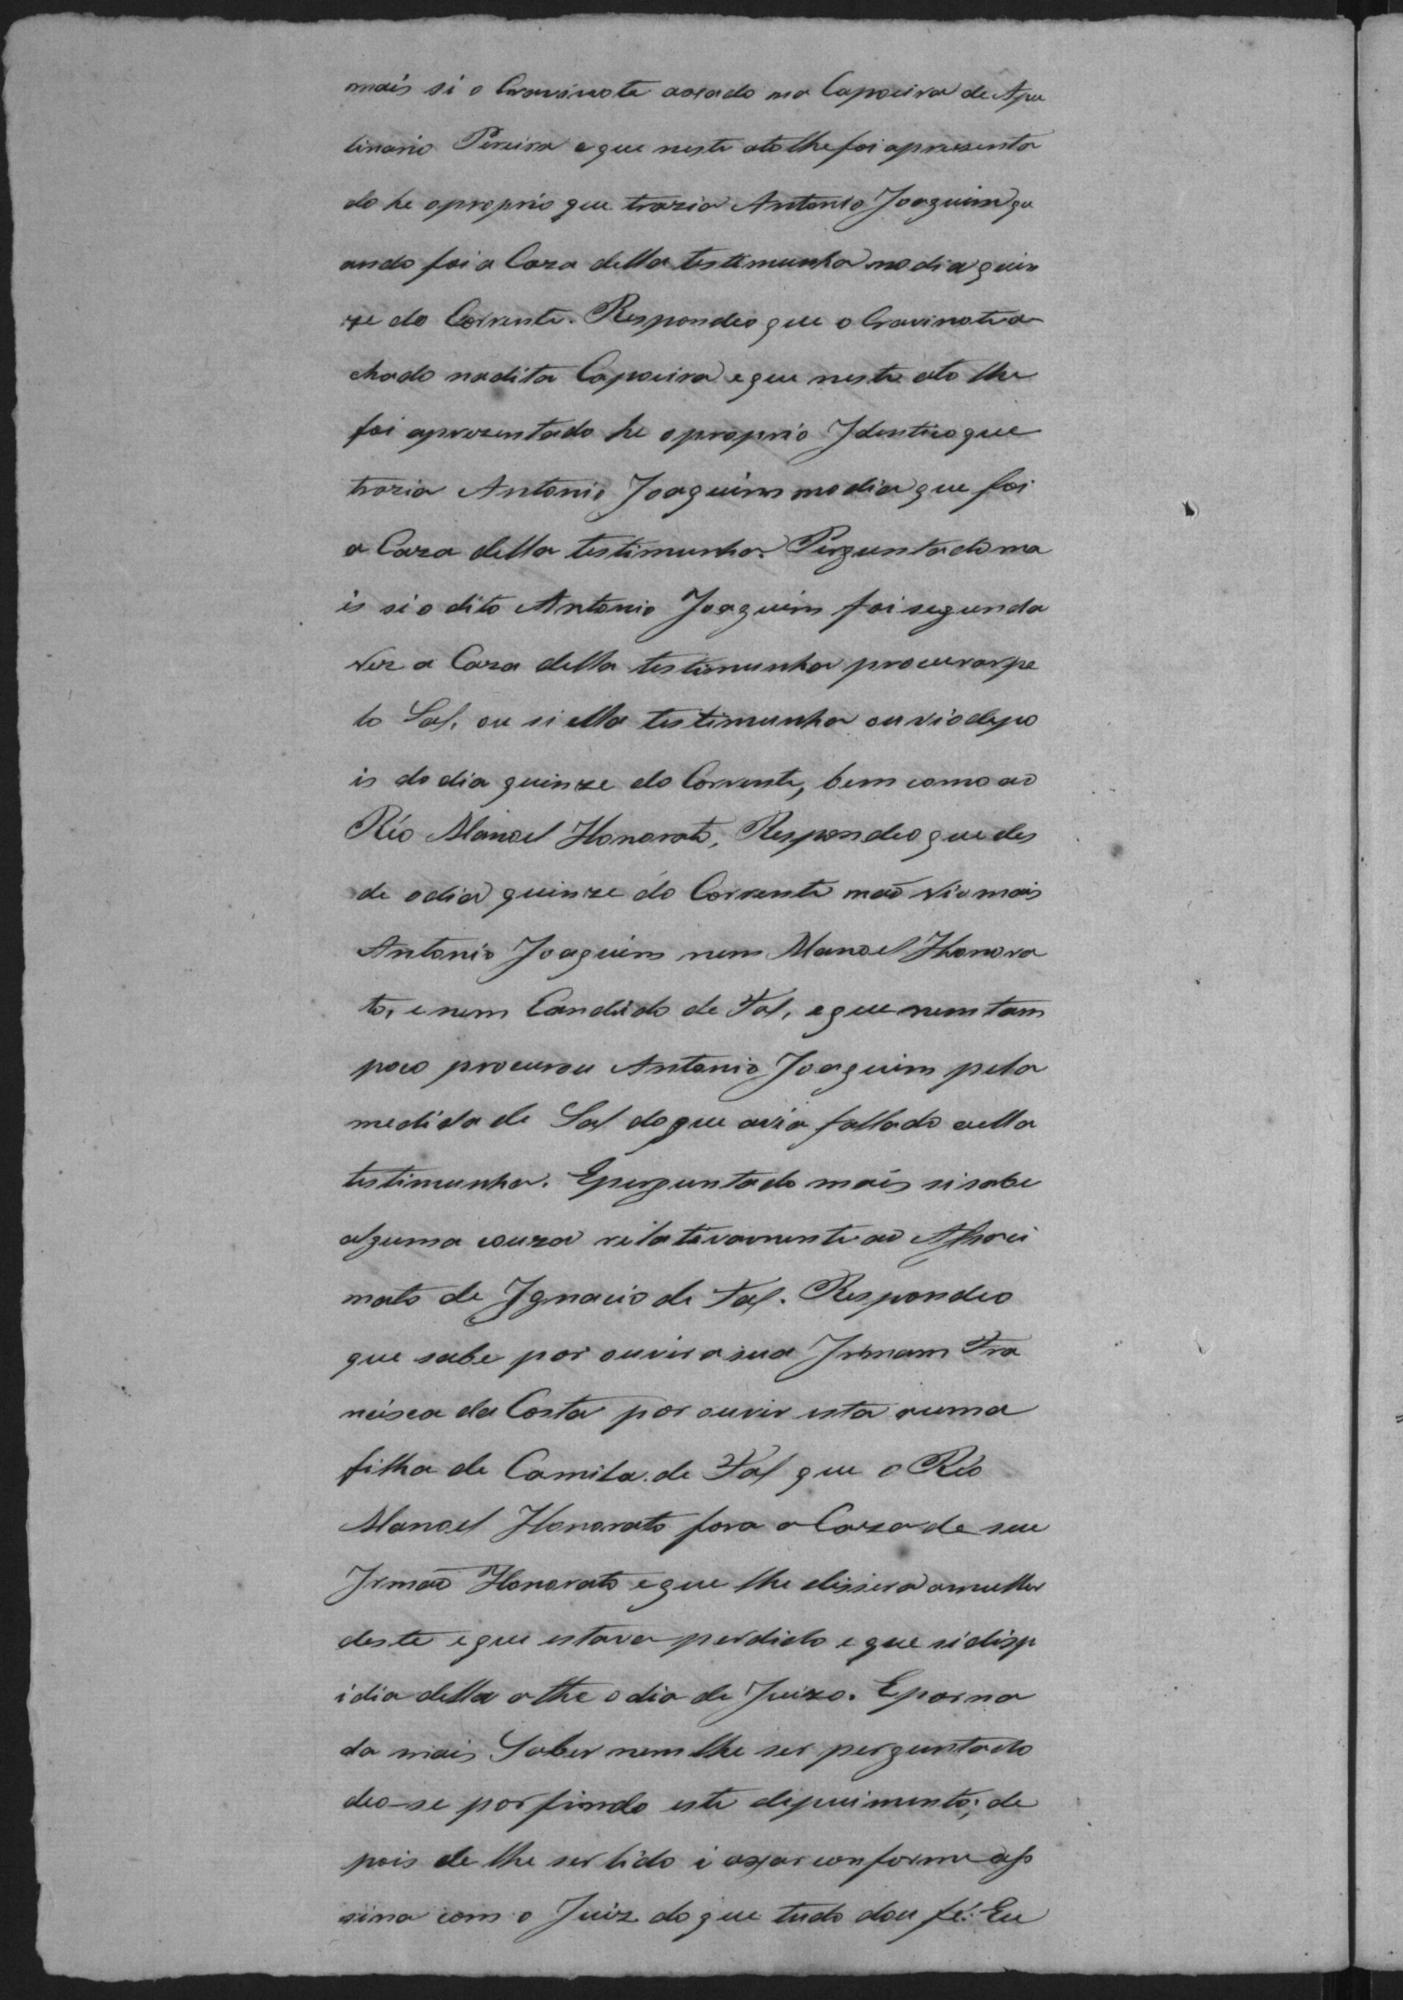 mais si o Cravinote axado na Capoeira de Apu
linario Pereira e que neste ato lhe foi apresenta
do he o proprio que trazia Antonio Joaquim qu
ando foi a Caza della testimunha no dia quin
ze do Corrente. Respondeo que o Cravinote a
chado na dita Capoeira e que neste ato lhe
foi aprezentado he o proprio Identico que
trazia Antonio Joaquim no dia que foi
a Caza della testimunha. Perguntado ma
is si o dito Antonio Joaquim foi segunda
vez a Caza della testimunha procurar pe
lo Sal, ou si ella testimunha ou vio depo
is do dia quinze do Corrente, bem como ao
Réo Manoel Honorato, Respondeo que des
de o dia quinze do Corrente não vio mais
Antonio Joaquim nem Manoel Honora
to, e nem Candido de Tal, e que nem tam
poco procurou Antonio Joaquim pela
medida de Sal do que avia fallado a ella
testimunha. E perguntado mais si sabe
alguma couza relativamente ao Assaci
nato de Ignacio de Tal. Respondeo
que sabe por ouvir a sua Irmam Fra
ncisca da Costa por ouvir esta a uma
filha de Camila de Tal que o Réo
Manoel Honorato fora a Caza de seu
Irmão Honorato e que lhe dissera a mulher
deste e que estava perdido e que si disp
idia della athe o dia de Juizo. E por na
da mais Saber nem lhe ser perguntado
deo-se por findo este depuimento; de
pois de lhe ser lido i axar conforme as
sina com o Juiz do que tudo dou fé. Eu